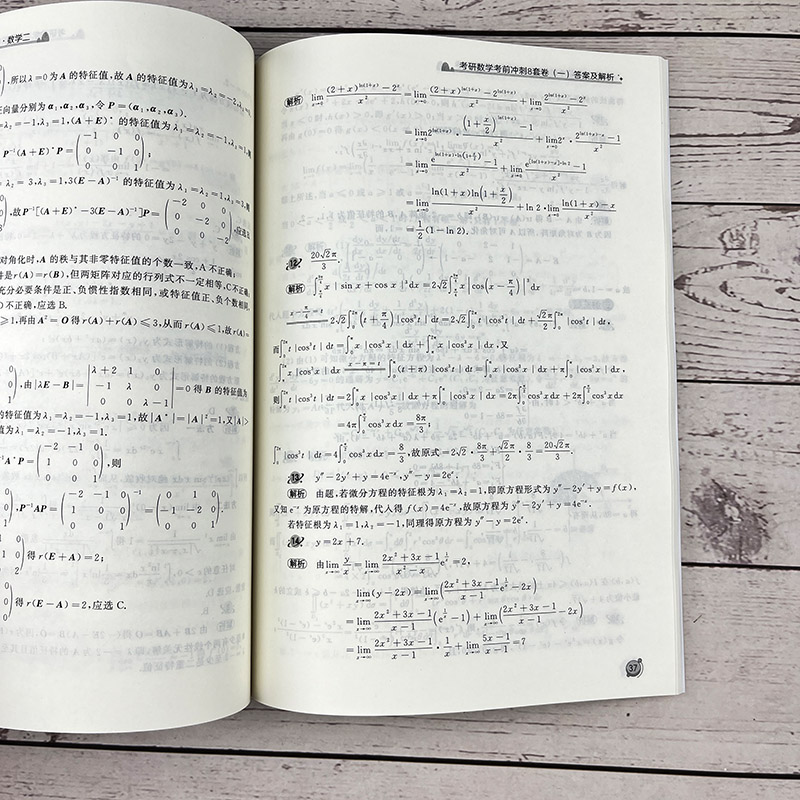 ·数学二
,所以λ=0为A的特征值,故A的特征值为λ₁=λ₂=-2,λ₃=
正向量分别为α₁,α₂,α₃,令P=(α₁,α₂,α₃).
λ₂=-1,λ₃=1,(A+E)*的特征值为λ₁=λ₂=-1,λ₃=1,则
P⁻¹(A+E)*P=(-1 0 0; 0 -1 0; 0 0 1);
λ₂=3,λ₃=1,3(E-A)⁻¹的特征值为λ₁=λ₂=1,λ₃=3,则
,故P⁻¹[(A+E)*-3(E-A)⁻¹]P=(-2 0 0; 0 -2 0; 0 0 -2),应选B
对角化时,A的秩与其非零特征值的个数一致,A不正确;
件是r(A)=r(B),但两矩阵对应的行列式不一定相等,C不正确;
充分必要条件是正、负惯性指数相同,或特征值正、负个数相同,
D不正确,应选B.
≥1,再由A²=O得r(A)+r(A)≤3,从而r(A)≤1,故r(A)=
,由|λE-B|=|λ+2 1 0; -1 λ 0; 0 0 λ-1|=0得B的特征值为
的特征值为λ₁=λ₂=-1,λ₃=1,故|A*|=|A|²=1,又|A|>
值为λ₁=λ₂=-1,λ₃=1.
⁻¹A*P=(-2 -1 0; 1 0 0; 0 0 1),则
,P⁻¹AP=(-2 -1 0; 1 0 0; 0 0 1)⁻¹=(0 1 0; -1 -2 0; 0 0 1).
得r(E+A)=2;
得r(E-A)=2,应选C.
考研数学考前冲刺8套卷(一)答案及解析
解析 lim_{x→0} ((2+x)^{ln(1+x)}-2^x)/x²=lim_{x→0} ((2+x)^{ln(1+x)}-2^{ln(1+x)})/x²+lim_{x→0} (2^{ln(1+x)}-2^x)/x²
=lim_{x→0} 2^{ln(1+x)}·((1+x/2)^{ln(1+x)}-1)/x²+lim_{x→0} 2^x·(2^{ln(1+x)-x}-1)/x²
=lim_{x→0} (e^{ln(1+x)·ln(1+x/2)}-1)/x²+lim_{x→0} (e^{[ln(1+x)-x]·ln 2}-1)/x²
=lim_{x→0} (ln(1+x)ln(1+x/2))/x²+ln 2·lim_{x→0} (ln(1+x)-x)/x²
=1/2(1-ln 2).
12 20√2π/3.
解析 x|sin x+cos x|³dx=2√2 x|cos(x-π/4)|³dx
x-π/4=t 2√2∫₀^{2π}(t+π/4)|cos³t|dt=2√2∫₀^{2π}t|cos³t|dt+(√2π/2)∫₀^{2π}|cos³t|dt,
而∫₀^{2π}t|cos³t|dt=∫₀^{π}x|cos³x|dx+∫_π^{2π}x|cos³x|dx,又
∫_π^{2π}x|cos³x|dx x-π=t ∫₀^{π}(t+π)|cos³t|dt=∫₀^{π}x|cos³x|dx+π∫₀^{π}|cos³x|dx,
则∫₀^{2π}t|cos³t|dt=2∫₀^{π}x|cos³x|dx+π∫₀^{π}|cos³x|dx=2π∫₀^{π/2}cos³x dx+2π∫₀^{π/2}cos³x dx
=4π∫₀^{π/2}cos³x dx=8π/3;
∫₀^{2π}|cos³t|dt=4∫₀^{π/2}cos³x dx=8/3,故原式=2√2·8π/3+√2π/2·8/3=20√2π/3.
13 y″-2y′+y=4e⁻ˣ,y″-y=2eˣ.
解析 由题,若微分方程的特征根为λ₁=λ₂=1,即原方程形式为y″-2y′+y=f(x),
又知e⁻ˣ为原方程的特解,代入得f(x)=4e⁻ˣ,故原方程为y″-2y′+y=4e⁻ˣ.
若特征根为λ₁=1,λ₂=-1,同理得原方程为y″-y=2eˣ.
14 y=2x+7.
解析 由lim_{x→∞} y/x=lim_{x→∞} (2x²+3x-1)/(x²-x) e^{1/x}=2,
lim_{x→∞}(y-2x)=lim_{x→∞}((2x²+3x-1)/(x-1) e^{1/x}-2x)
=lim_{x→∞} (2x²+3x-1)/(x-1)(e^{1/x}-1)+lim_{x→∞}((2x²+3x-1)/(x-1)-2x)
=lim_{x→∞} (2x²+3x-1)/(x-1)·1/x+lim_{x→∞} (5x-1)/(x-1)=7
37